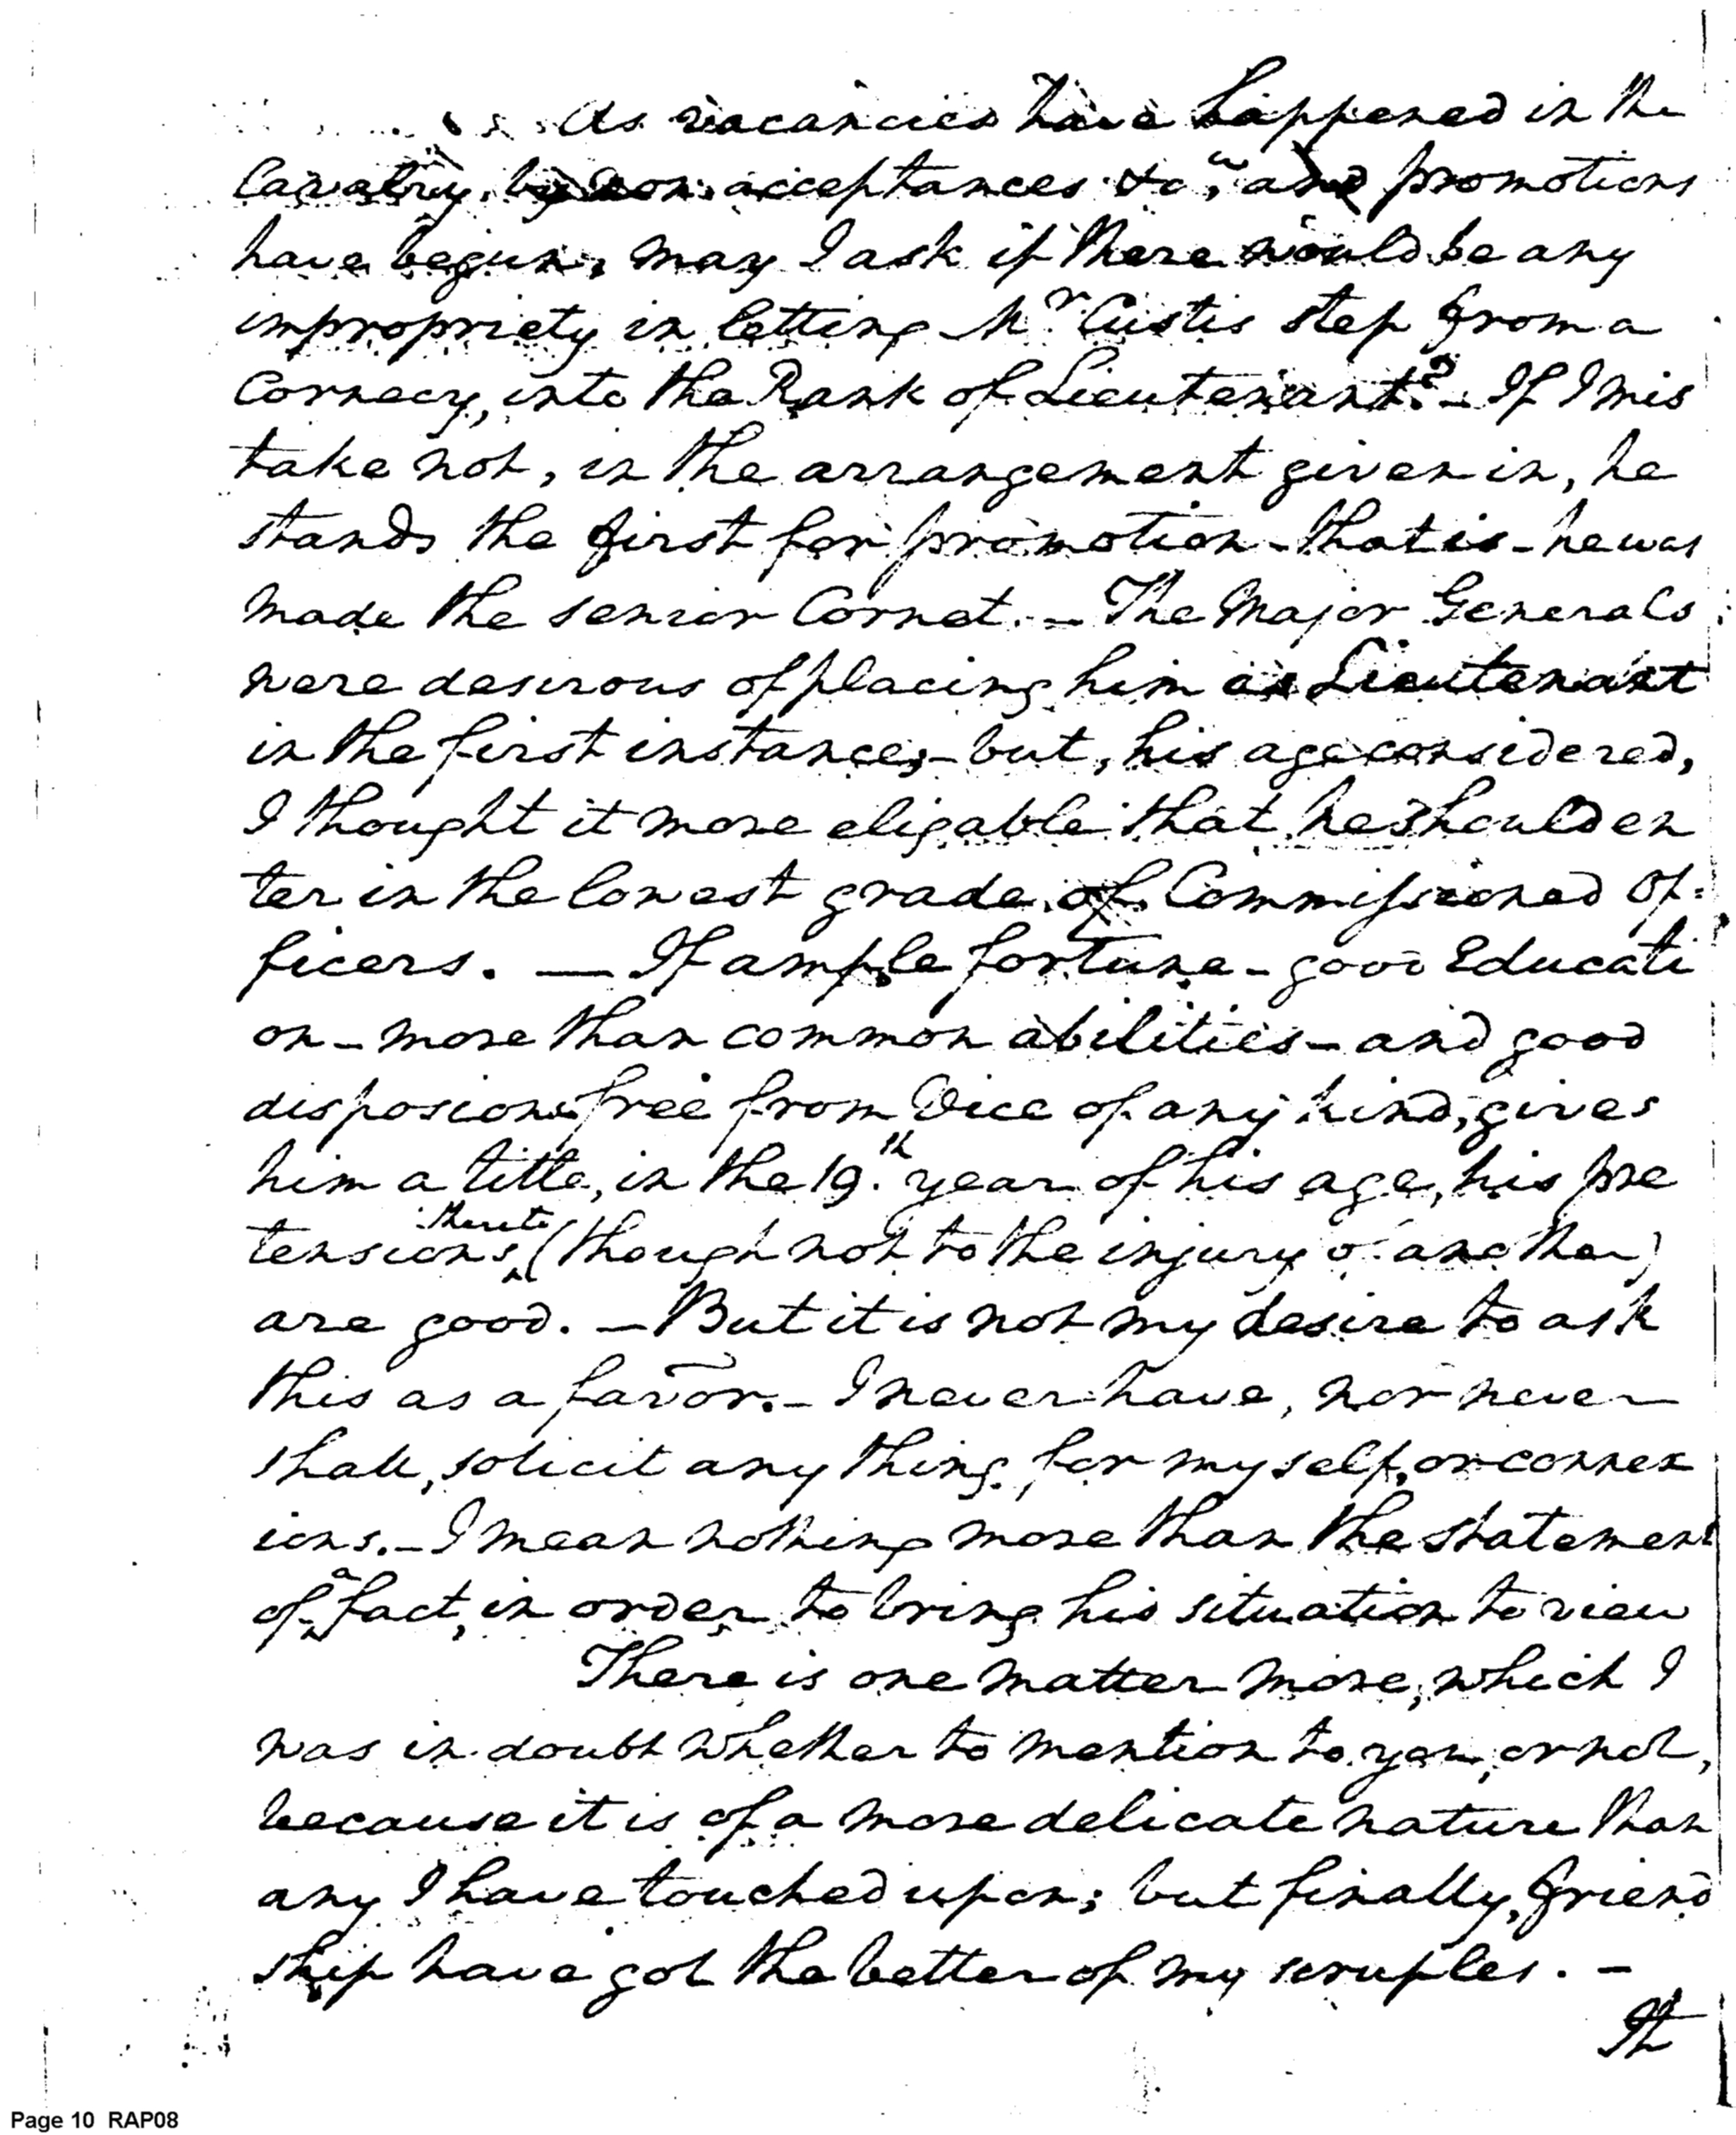 As vacancies have happened in the
Cavalry, by non acceptances &ca, and promotions
have begun, may I ask if there would be any
impropriety in letting Mr Custis step from a
Cornecy, into the Rank of Lieutenant?– If I mis
take not, in the arrangement given in, he
stands the first for promotion – that is – he was
made the senior Cornet. – The Major Generals
were desirous of placing him as Lieutenant
in the first instance; – but, his age considered,
I thought it more eligable that he should en
ter in the lowest grade of Commissioned Of=
ficers. — If ample fortune – good Educati
on – more than common abilities – and good
disposions free from Vice of any kind, gives
him a title, in the 19th year of his age, his pre
tensions thereto (though not to the injury of another)
are good. – But it is not my desire to ask
this as a favor. – I never have, nor never
shall, solicit any thing for myself, or connex
ions. – I mean nothing more than the statement
of a fact, in order to bring his situation to view
There is one matter more, which I
was in doubt whether to mention to you, or not,
because it is of a more delicate nature than
any I have touched upon; but finally, friend
ship have got the better of my scruples. –
It
Page 10 RAP08